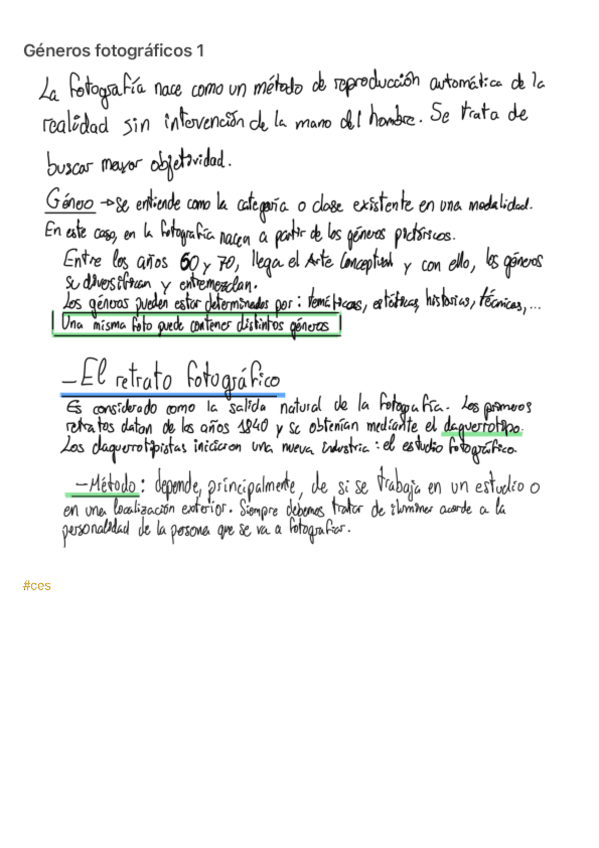 Géneros fotográficos 1
La fotografía nace como un método de reproducción automática de la
realidad sin intervención de la mano del hombre. Se trata de
buscar mayor objetividad.
Género → Se entiende como la categoría o clase existente en una modalidad.
En este caso, en la fotografía nacen a partir de los géneros pictóricos.
Entre los años 60 y 70, llega el Arte Conceptual y con ello, los géneros
se diversifican y entremezclan.
Los géneros pueden estar determinados por: temáticas, estéticas, historias, técnicas,...
Una misma foto puede contener distintos géneros
- El retrato fotográfico
Es considerado como la salida natural de la fotografía. Los primeros
retratos datan de los años 1840 y se obtenían mediante el daguerrotipo.
Los daguerrotipistas iniciaron una nueva industria: el estudio fotográfico.
- Método: depende, principalmente, de si se trabaja en un estudio o
en una localización exterior. Siempre debemos tratar de iluminar acorde a la
personalidad de la persona que se va a fotografiar.
#ces